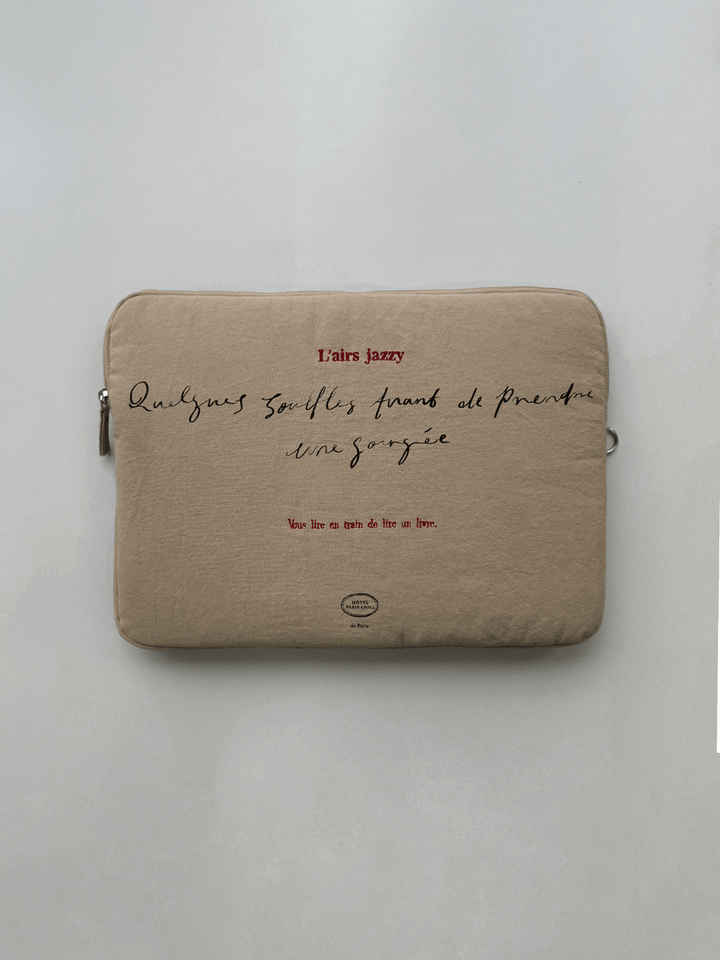 L'airs jazzy
Quelques souffles avant de prendre
une gorgée
Vous lire en train de lire un livre.
HÔTEL
PARIS·CHILL
de Paris